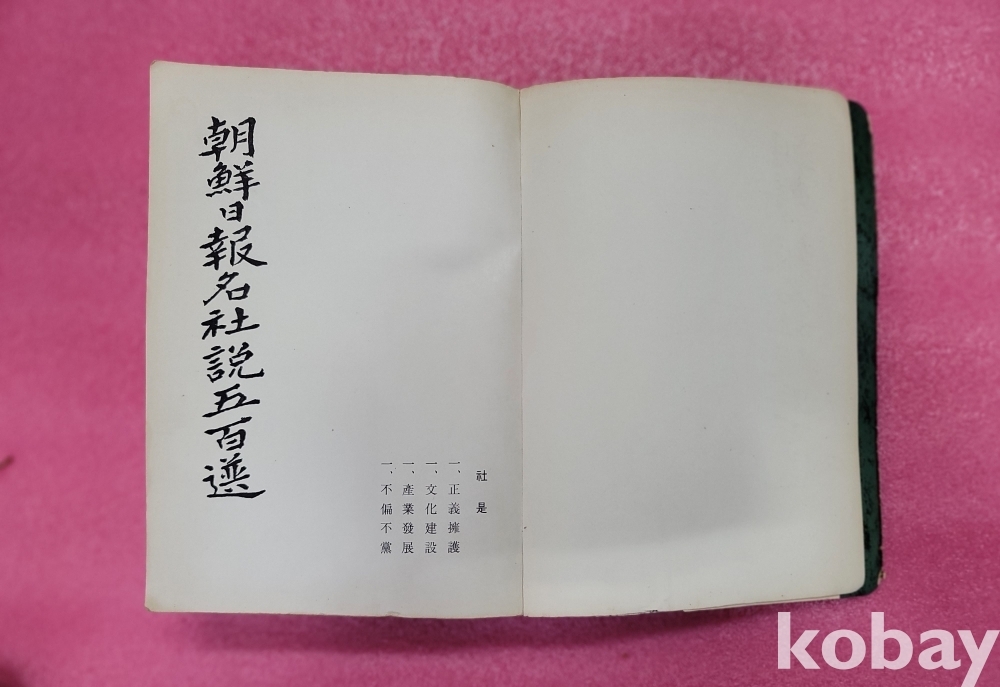 朝鮮日報名社説五百選
社是
一、正義擁護
一、文化建設
一、產業發展
一、不偏不黨
kobay